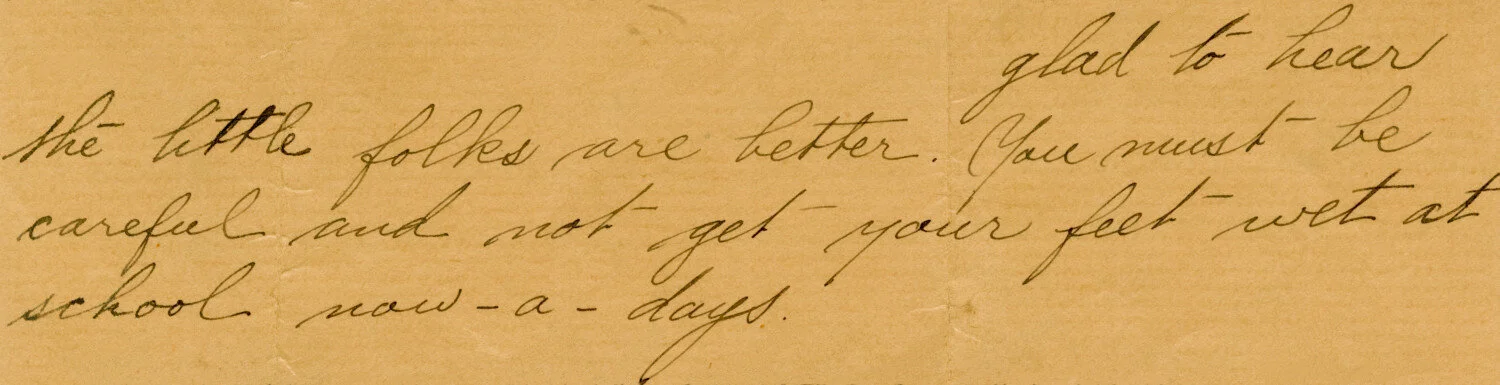 glad to hear
the little folks are better. You must be
careful and not get your feet wet at
school now-a-days.